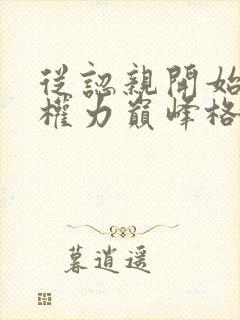 從認親開始
權力巔峰格
暮逍遥